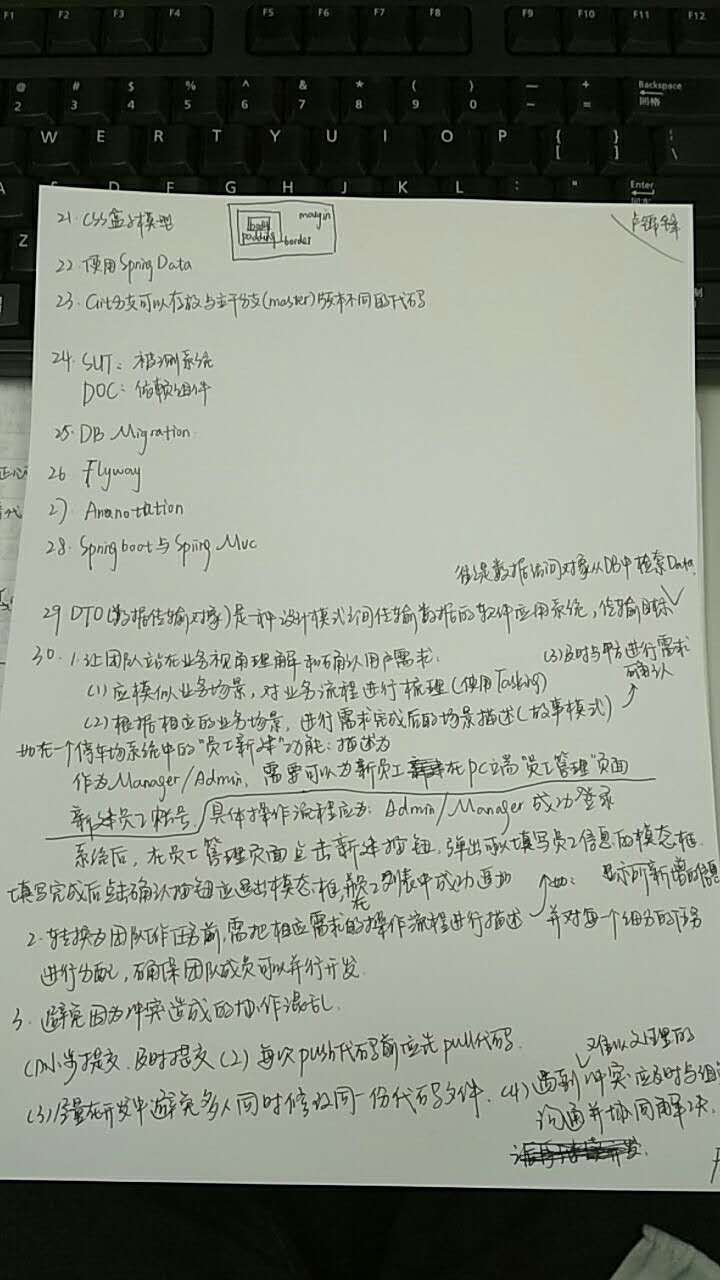 F1 F2 F3 F4 F5 F6 F7 F8 F9 F10 F11 F12
@ # $ % ^ & * ( ) — + Backspace
2 3 4 5 6 7 8 9 0 - = 回格
W E R T Y U I O P { } |
[ ] \
A S D F G H J K L : " Enter
Z
21. CSS盒子模型
body
padding
border
margin
22. 使用Spring Data
23. Git分支可以存放与主干分支(master)版本不同的代码
24. SUT: 被测系统
DOC: 依赖组件
25. DB Migration
26 Flyway
27 Anonotation
28. Springboot与Spring Mvc
往往是数据访问对象从DB中检索Data
29 DTO(数据传输对象)是一种设计模式之间传输数据的软件应用系统,传输目标
30. 1.让团队站在业务视角理解和确认用户需求:
(3)及时与甲方进行需求
确认
(1) 应模似业务场景,对业务流程进行梳理(使用Tasking)
(2)根据相应的业务场景,进行需求完成后的场景描述(故事模式)
如在一个停车场系统中的"员工新建"功能:描述为
作为Manager/Admin, 需要可以为新员工在pc端"员工管理"页面
新建员工帐号 具体操作流程应为: Admin/Manager 成功登录
系统后, 在员工管理页面点击新建按钮,弹出可以填写员工信息的模态框.
填写完成后点击确认按钮应退出模态框,在员工列表中成功追加 显示所新增的信息
2.转换为团队协作任务前,需把相应需求的操作流程进行描述 并对每个细分的任务
进行分配,确保团队成员可以并行开发.
3. 避免因为冲突造成的协作混乱.
(1)小步提交,及时提交 (2) 每次push代码前应先pull代码.
(3)尽量在开发中避免多人同时修改同一份代码文件. (4) 遇到难以处理的冲突应及时与组
沟通并协同解决.